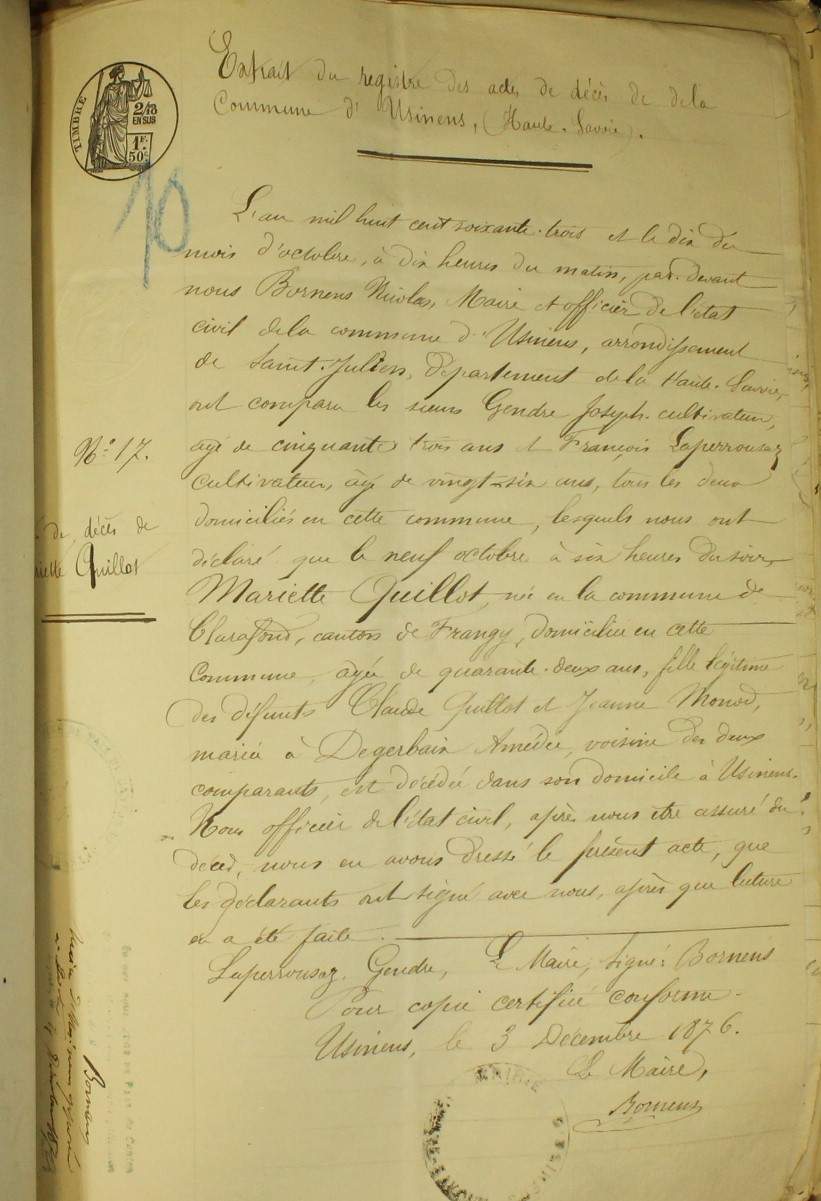 TIMBRE
2/10
EN SUS
1F.
50c
Extrait du registre des actes de décès de de la
Commune d'Usinens, (Haute-Savoie).
10
L'an mil huit cent soixante-trois et le dix du
mois d'octobre, à dix heures du matin, par-devant
nous Bornens Nicolas, Maire et officier de l'état
civil de la commune d'Usinens, arrondissement
de Saint-Julien, département de la Haute-Savoie,
ont comparu les sieurs Gendre Joseph cultivateur,
N° 17.
âgé de cinquante trois ans et François Laperrousaz
cultivateur, âgé de vingt-six ans, tous les deux
domiciliés en cette commune, lesquels nous ont
de décès de
déclaré que le neuf octobre à six heures du soir
Quillot
Mariette Quillot, née en la commune de
Clarafond, canton de Frangy, domiciliée en cette
commune, agée de quarante-deux ans, fille légitime
des défunts Claude Quillot et Jeanne Monod,
mariée à Degerbaix Amédée, voisine des deux
comparants, est décédée dans son domicile à Usinens.
Nous officier de l'état civil, après nous être assuré du
décès, nous en avons dressé le présent acte, que
les déclarants ont signé avec nous, après que lecture
en a été faite.
Laperrousaz, Gendre, Le Maire, signé: Bornens
Pour copie certifiée conforme
Usinens, le 3 Décembre 1876.
Le Maire,
Bornens
MAIRIE